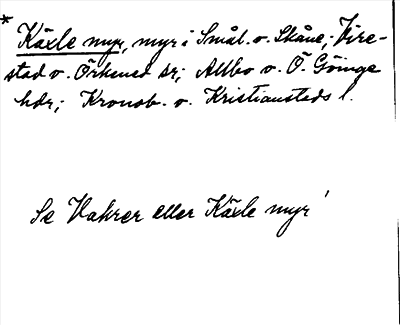 * Käxle myr, myr i Smål. o. Skåne; Vire-
stad o. Örkened sr; Allbo o. Ö. Göinge
hdr; Kronob. o. Kristianstads l.
Se Vakrer eller Käxle myr